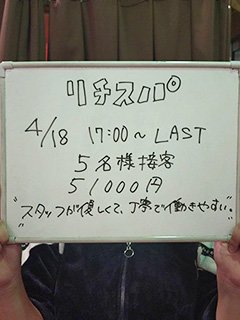 リチスパ
4/18 17:00～LAST
5名様接客
51000円
"スタッフが優しくて、丁寧で働きやすい。"